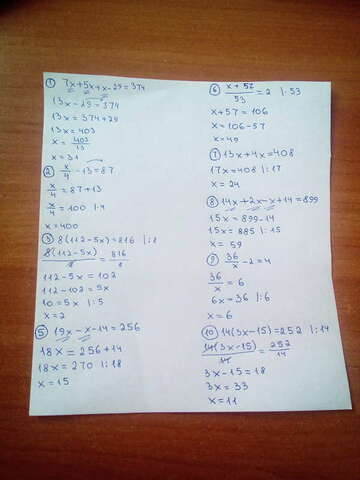 ① 7x+5x+x-29=374
13x-29=374
13x=374+29
13x=403
x=403/13
x=31
② x/4-13=87
x/4=87+13
x/4=100 |·4
x=400
③ 8(112-5x)=816 |:8
8(112-5x)/8=816/8
112-5x=102
112-102=5x
10=5x |:5
x=2
⑤ 19x-x-14=256
18x=256+14
18x=270 |:18
x=15
⑥ x+57/53=2 |·53
x+57=106
x=106-57
x=49
⑦ 13x+4x=408
17x=408 |:17
x=24
⑧ 14x+2x-x+14=899
15x=899-14
15x=885 |:15
x=59
⑨ 36/x-2=4
36/x=6
6x=36 |:6
x=6
⑩ 14(3x-15)=252 |:14
14(3x-15)/14=252/14
3x-15=18
3x=33
x=11